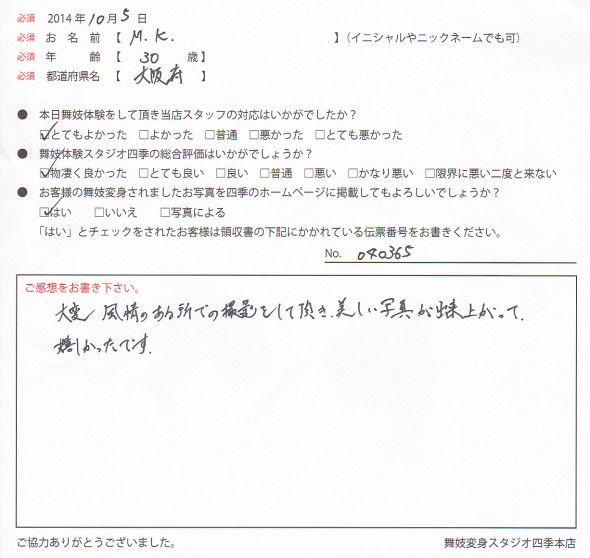 必須 2014年10月5日
必須 お名前【 M.K. 】(イニシャルやニックネームでも可)
必須 年齢【 30 歳】
必須 都道府県名【 大阪府 】
● 本日舞妓体験をして頂き当店スタッフの対応はいかがでしたか?
☑とてもよかった □よかった □普通 □悪かった □とても悪かった
● 舞妓体験スタジオ四季の総合評価はいかがでしょうか?
☑物凄く良かった □とても良い □良い □普通 □悪い □かなり悪い □限界に悪い二度と来ない
● お客様の舞妓変身されましたお写真を四季のホームページに掲載してもよろしいでしょうか?
☑はい □いいえ □写真による
「はい」とチェックをされたお客様は領収書の下記にかかれている伝票番号をお書きください。
No. 040365
ご感想をお書き下さい。
大変、風情のある所での撮影をして頂き、美しい写真が出来上がって、
嬉しかったです。
ご協力ありがとうございました。 舞妓変身スタジオ四季本店